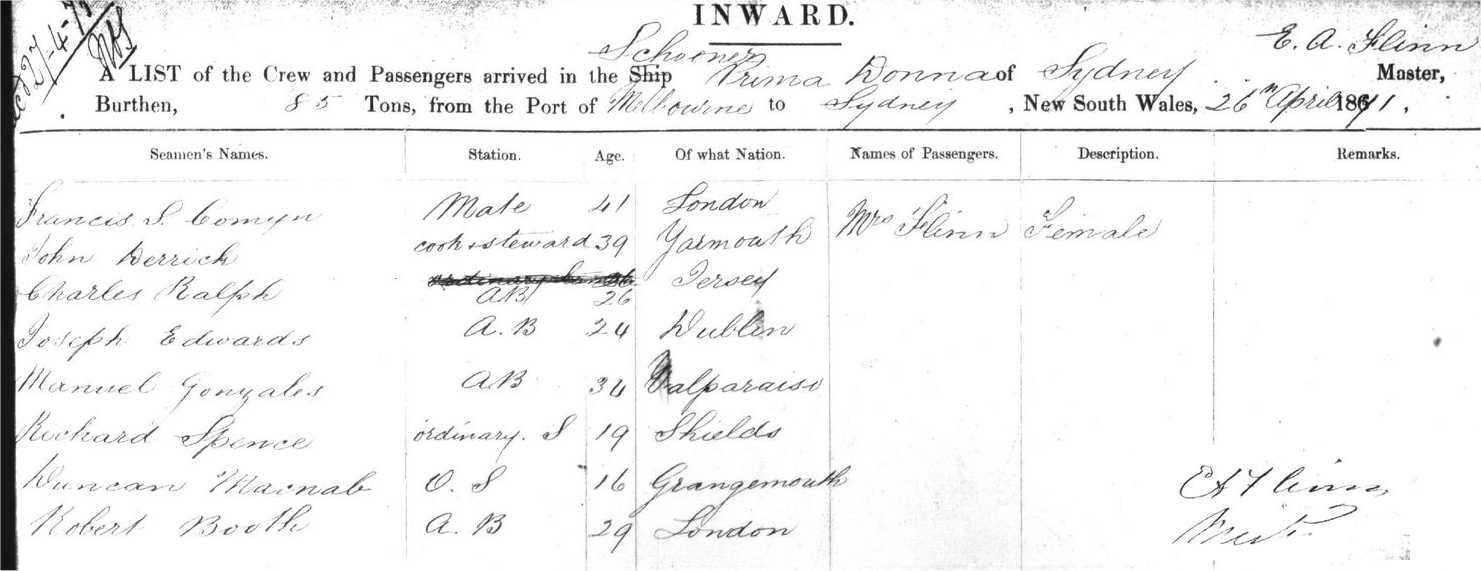 INWARD.
27-4-71
Schooner E. A. Flinn
A LIST of the Crew and Passengers arrived in the Ship Prima Donna of Sydney Master,
Burthen, 85 Tons, from the Port of Melbourne to Sydney, New South Wales, 26th April 1871.
Seamen's Names. Station. Age. Of what Nation. Names of Passengers. Description. Remarks.
Francis S. Comyn Mate 41 London Mrs Flinn Female
John Derrick cook & steward 39 Yarmouth
Charles Ralph A.B 26 Jersey
Joseph Edwards A.B 24 Dublin
Manuel Gonzales AB 34 Valparaiso
Richard Spence ordinary. S 19 Shields
Duncan Macnab O. S 16 Grangemouth E A Flinn
Robert Booth A. B 29 London